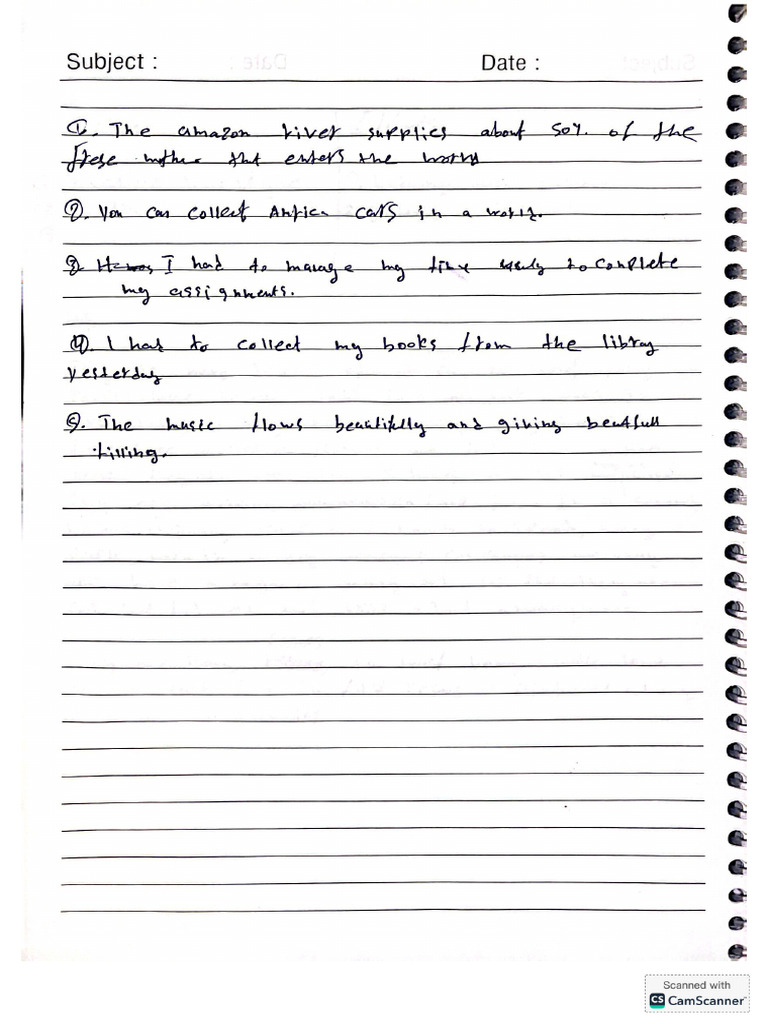 Subject : Date :
1. The amazon river supplies about 50% of the
that enters the world
2. You can collect cars in a
3. I had to manage my time to complete
my assignments.
4. I had to collect my books from the library
yesterday
5. The music flows beautifully and giving beautfull
Scanned with
CS CamScanner